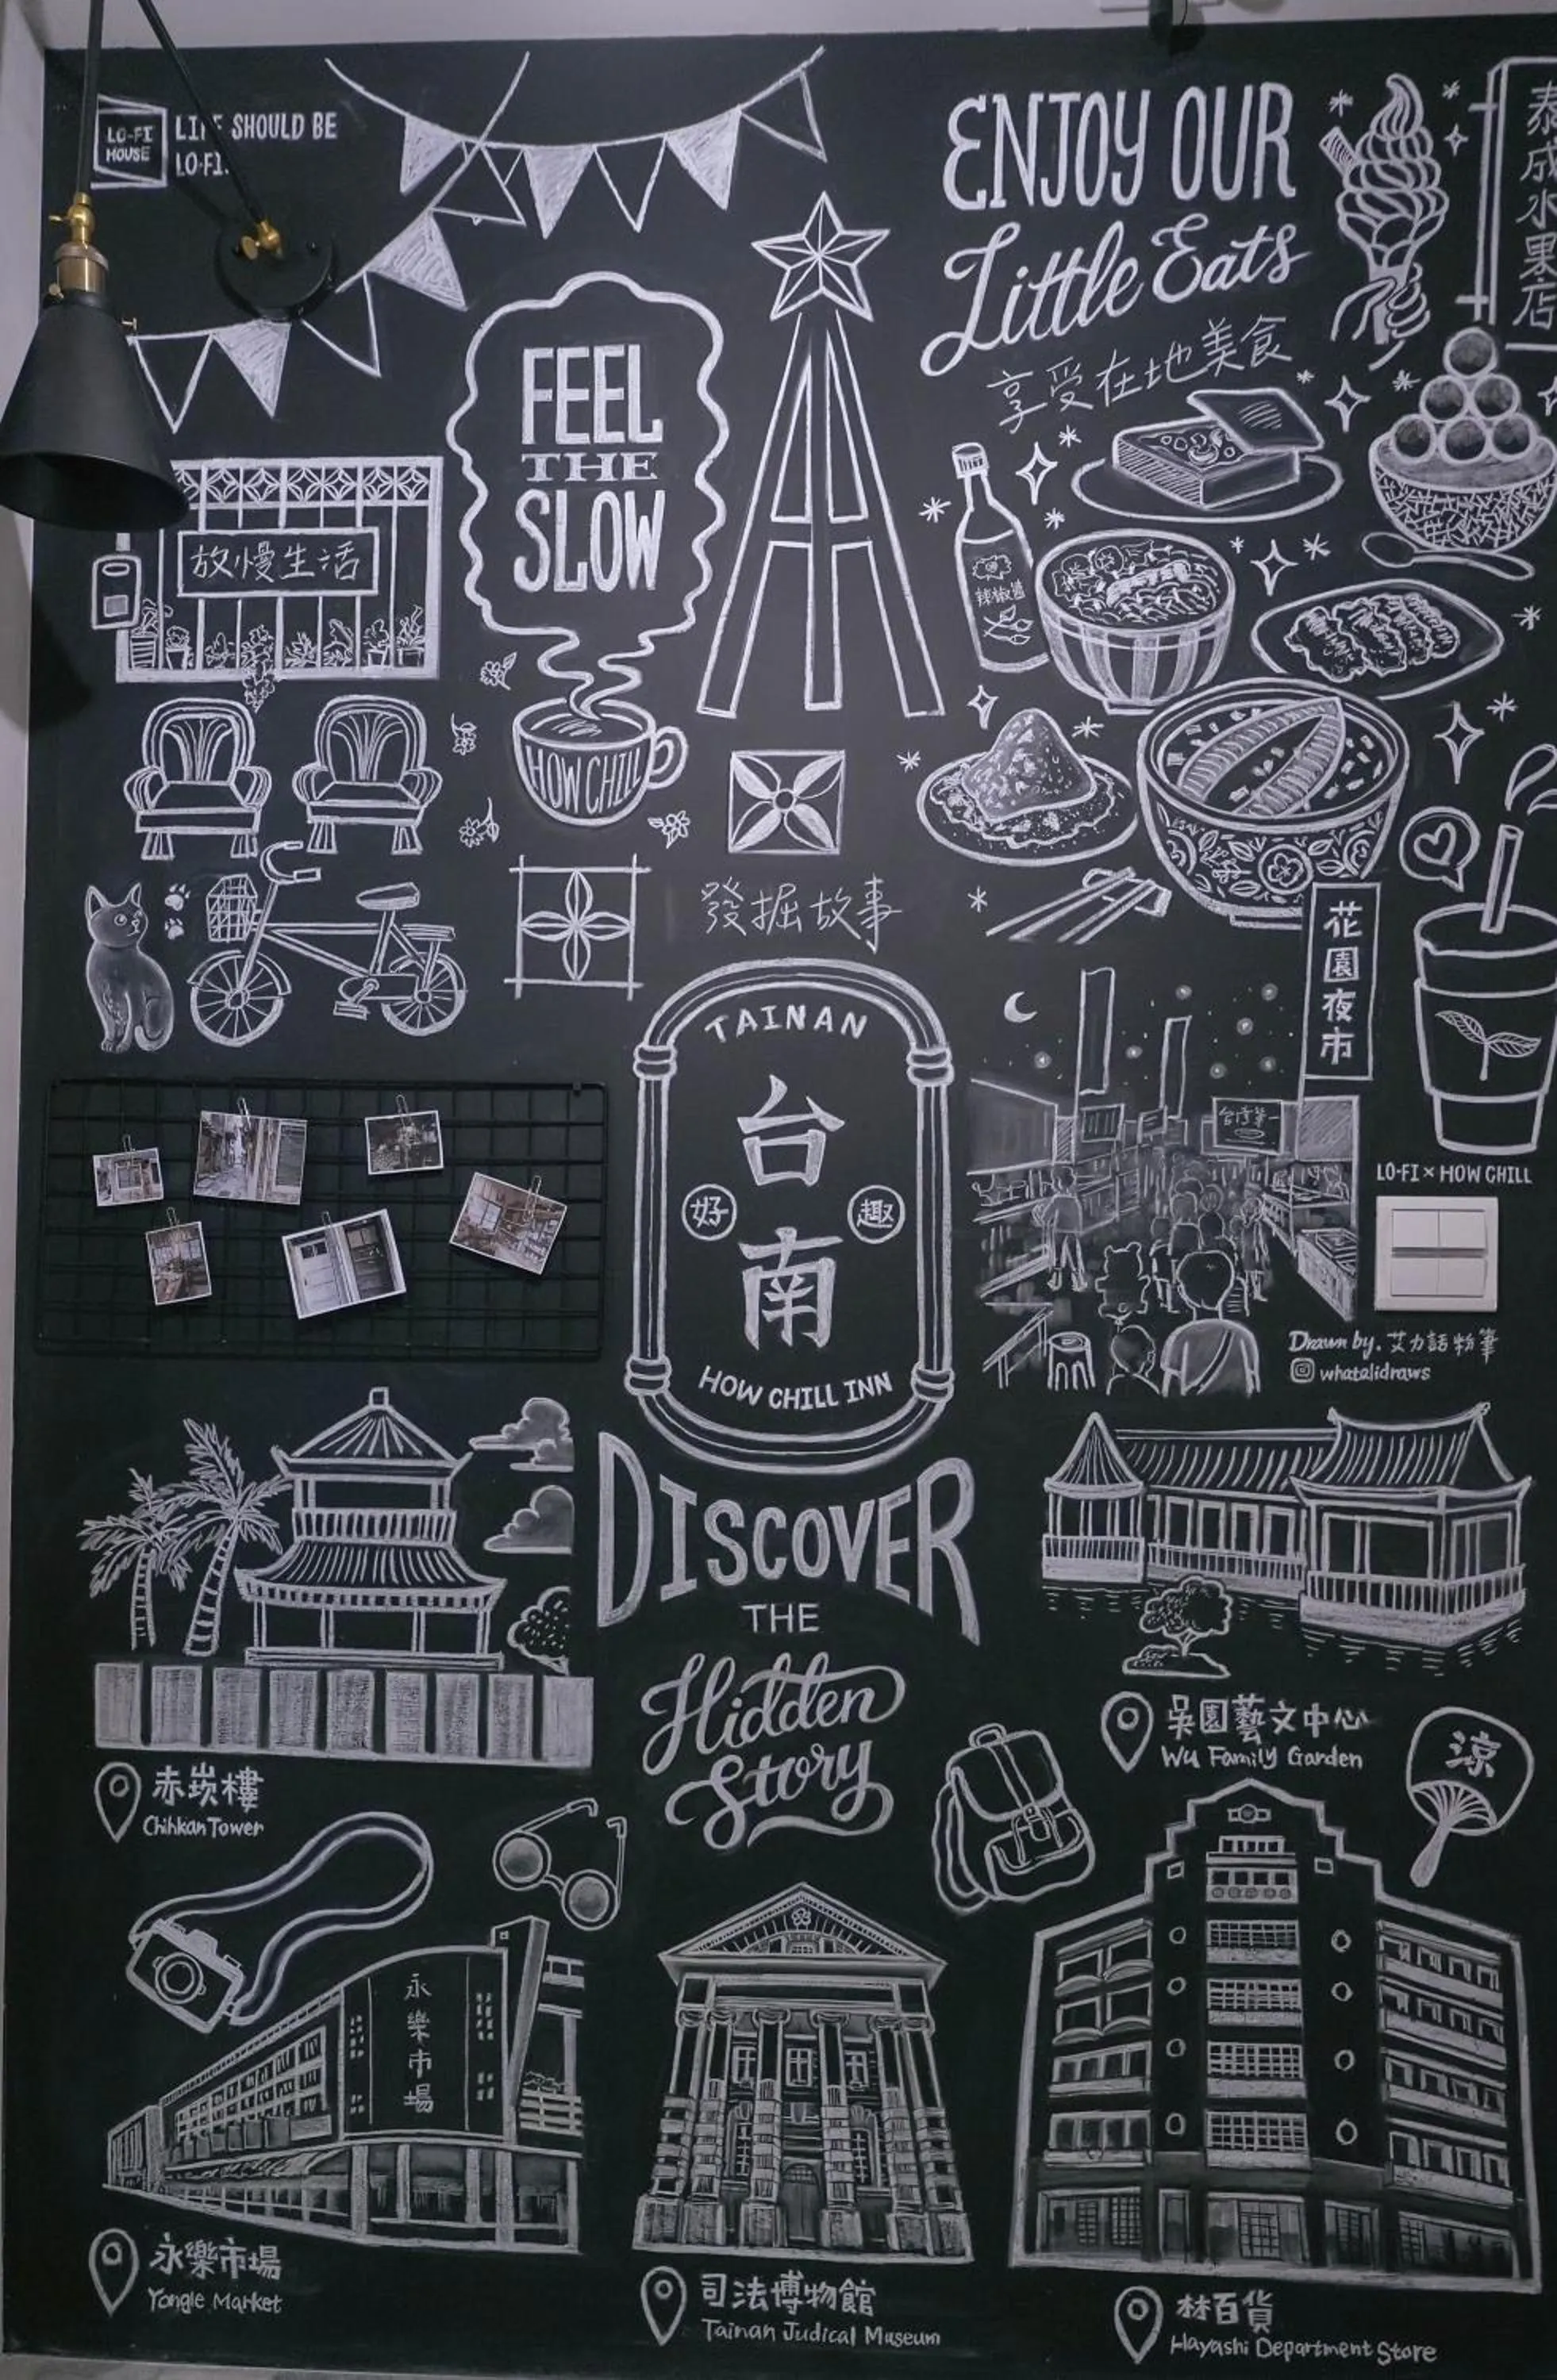 LO-FI
HOUSE
LIFE SHOULD BE
LO-FI.
ENJOY OUR
Little Eats
享受在地美食
泰成水果店
FEEL
THE
SLOW
放慢生活
HOW CHILL
辣椒醬
發掘故事
花園夜市
台灣第一
TAINAN
台
好 趣
南
HOW CHILL INN
LO-FI × HOW CHILL
Drawn by. 艾力話粉筆
whatalidraws
DISCOVER
THE
Hidden
Story
赤崁樓
Chihkan Tower
吳園藝文中心
Wu Family Garden
涼
永樂市場
永樂市場
Yongle Market
司法博物館
Tainan Judical Museum
林百貨
Hayashi Department Store